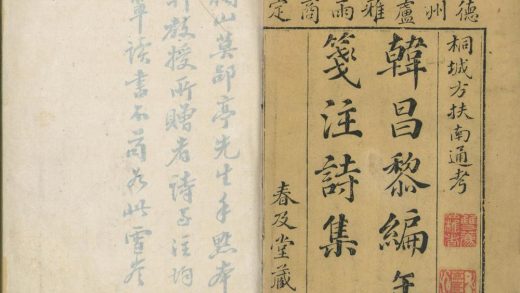 德州盧雅雨商定
桐城方扶南通考
韓昌黎編年
箋注詩集
春及堂藏
山莫郘亭先生手點本
教授所贈者詩及注均
讀書不苟若此雪岑